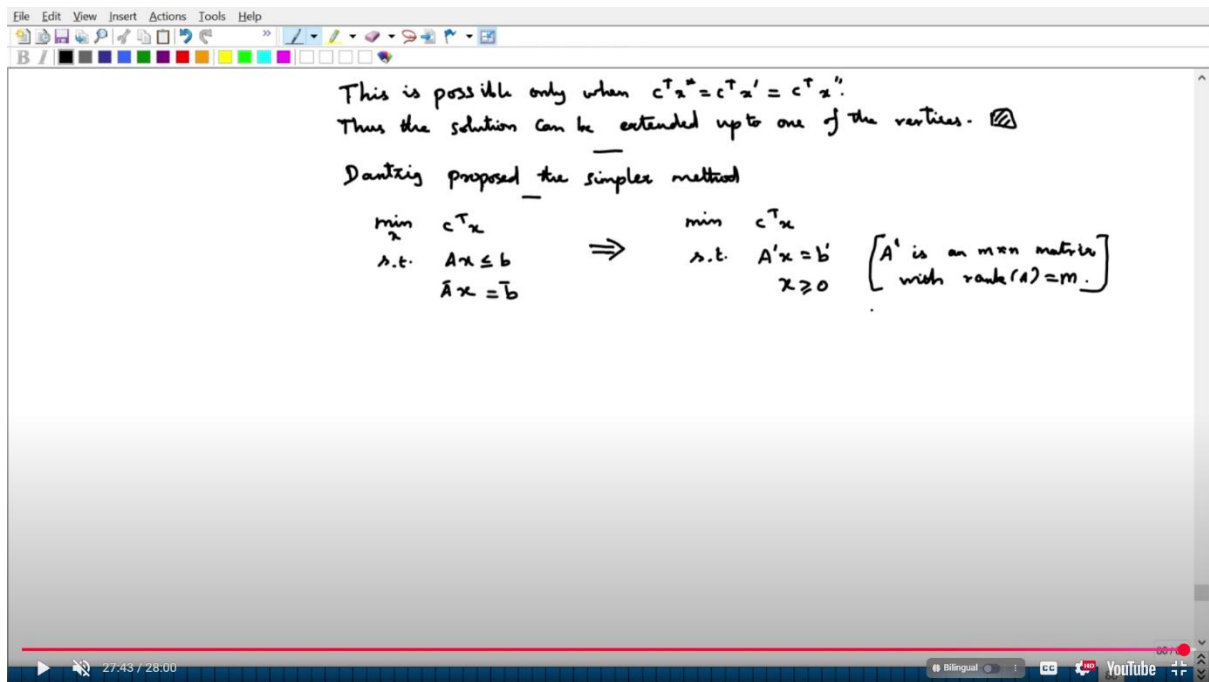 File Edit View Insert Actions Tools Help
B I
This is possible only when cᵀx* = cᵀx' = cᵀx".
Thus the solution can be extended upto one of the vertices.
Dantzig proposed the simplex method
min cᵀx ⇒ min cᵀx
x
s.t. Ax ≤ b s.t. A'x = b' [A' is an m×n matrix
Āx = b̄ x ≥ 0 with rank(A) = m.]
27:43 / 28:00 Bilingual CC HD YouTube